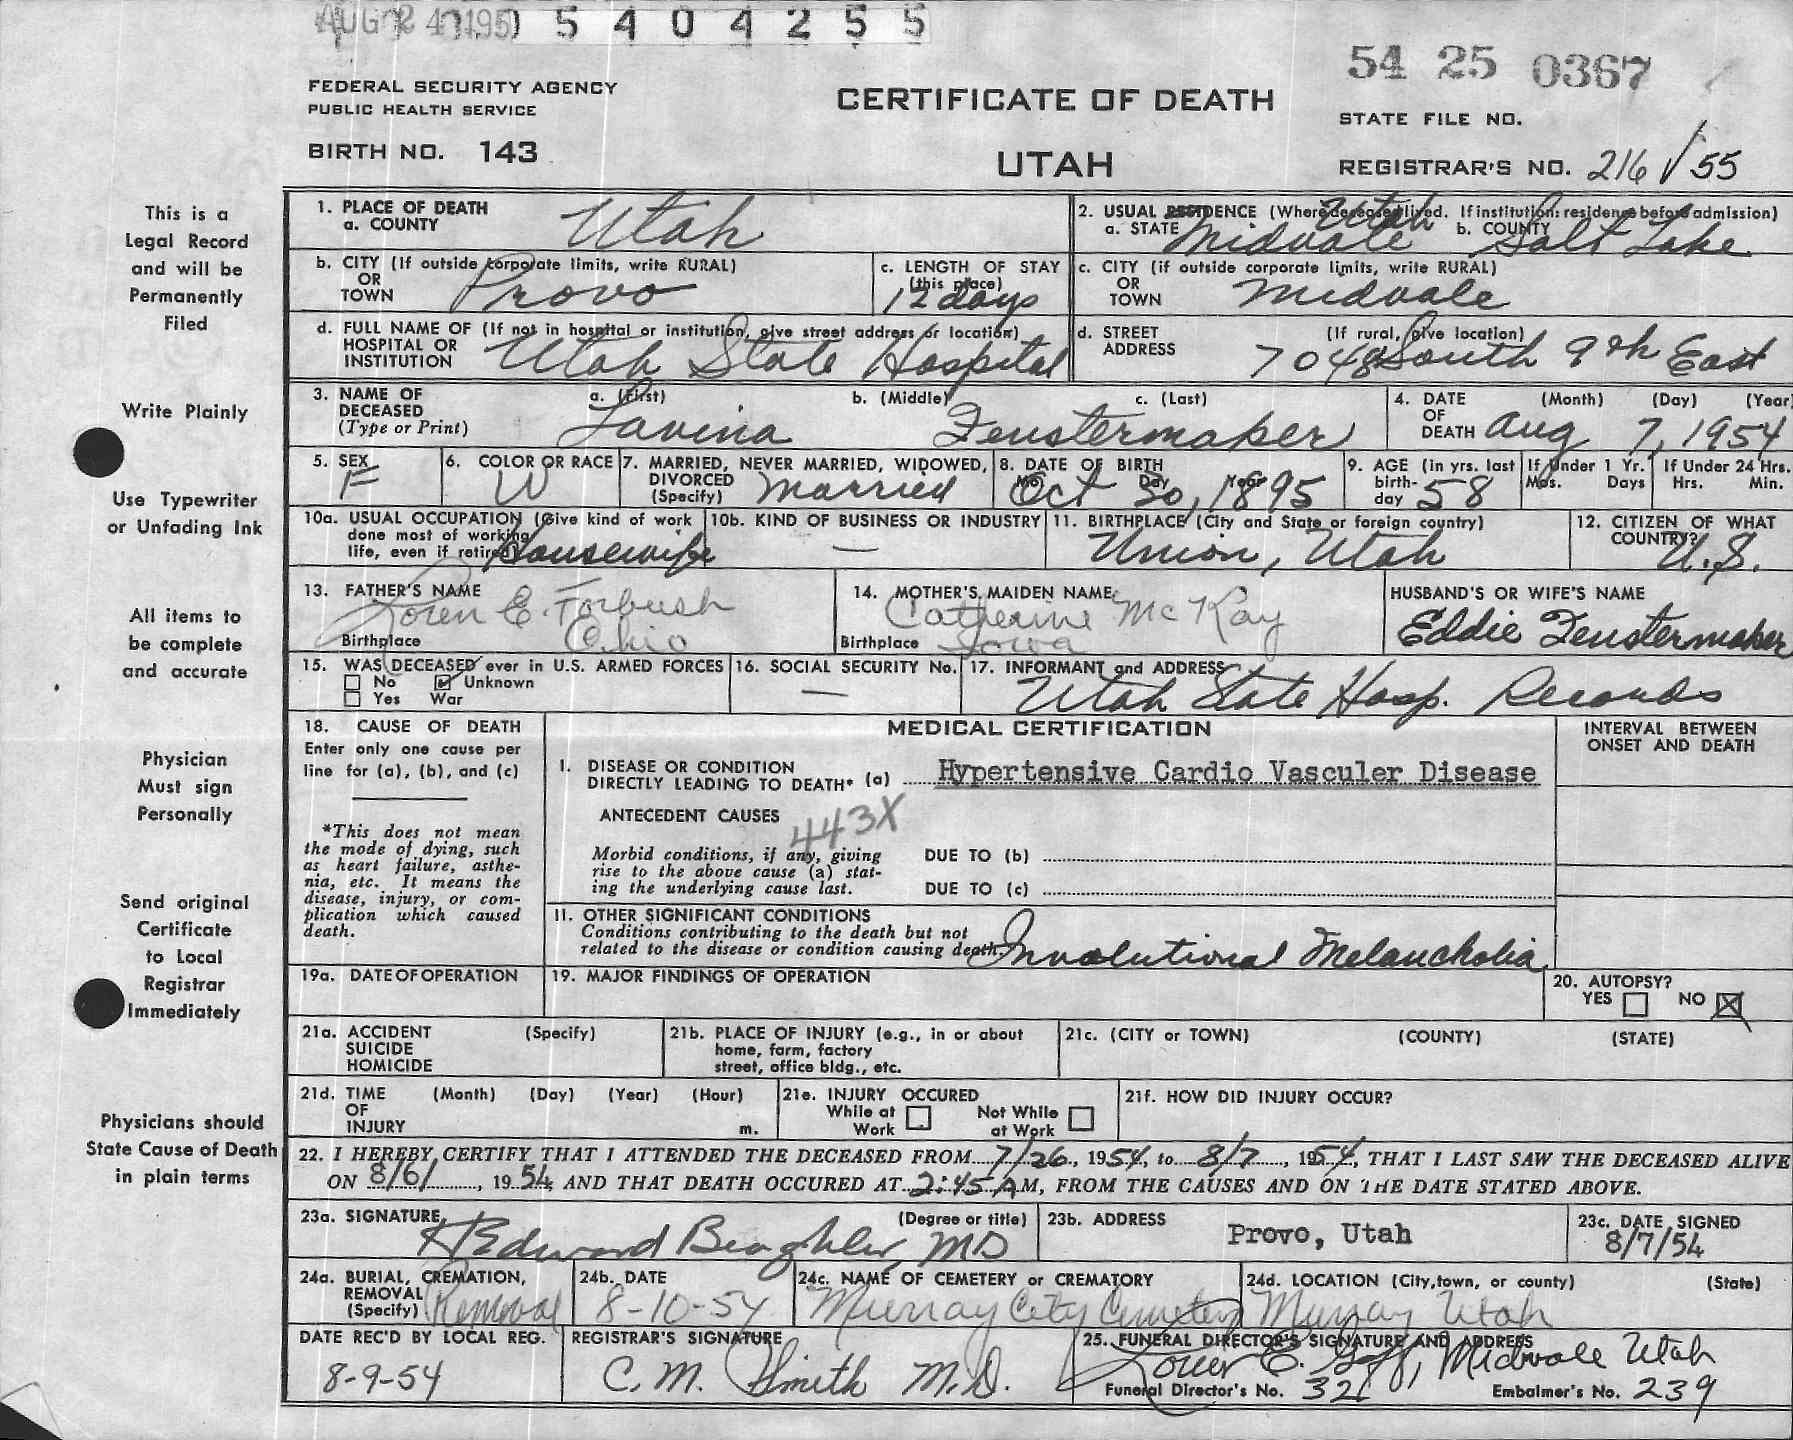 AUG 24 195
5404255
54 25 0367
FEDERAL SECURITY AGENCY
PUBLIC HEALTH SERVICE
CERTIFICATE OF DEATH
STATE FILE NO.
BIRTH NO. 143
UTAH
REGISTRAR'S NO. 216 / 55
This is a
Legal Record
and will be
Permanently
Filed
Write Plainly
Use Typewriter
or Unfading Ink
All items to
be complete
and accurate
Physician
Must sign
Personally
Send original
Certificate
to Local
Registrar
Immediately
Physicians should
State Cause of Death
in plain terms
1. PLACE OF DEATH
a. COUNTY Utah
2. USUAL RESIDENCE (Where deceased lived. If institution: residence before admission)
a. STATE Midvale Utah b. COUNTY Salt Lake
b. CITY (If outside corporate limits, write RURAL)
OR
TOWN Provo
c. LENGTH OF STAY
(this place)
12 days
c. CITY (if outside corporate limits, write RURAL)
OR
TOWN Midvale
d. FULL NAME OF (If not in hospital or institution, give street address or location)
HOSPITAL OR
INSTITUTION Utah State Hospital
d. STREET (If rural, give location)
ADDRESS 7048 South 9th East
3. NAME OF
DECEASED
(Type or Print)
a. (First) b. (Middle) c. (Last)
Lavina Fenstermaker
4. DATE (Month) (Day) (Year)
OF
DEATH Aug 7, 1954
5. SEX
F
6. COLOR OR RACE
W
7. MARRIED, NEVER MARRIED, WIDOWED,
DIVORCED
(Specify) Married
8. DATE OF BIRTH
Mo. Day Year
Oct 30, 1895
9. AGE (in yrs. last
birth-
day 58
If Under 1 Yr.
Mos. Days
If Under 24 Hrs.
Hrs. Min.
10a. USUAL OCCUPATION (Give kind of work
done most of working
life, even if retired) Housewife
10b. KIND OF BUSINESS OR INDUSTRY
—
11. BIRTHPLACE (City and State or foreign country)
Union, Utah
12. CITIZEN OF WHAT
COUNTRY?
U.S.
13. FATHER'S NAME
Loren E. Forbush
Birthplace Ohio
14. MOTHER'S MAIDEN NAME
Catherine McKay
Birthplace Iowa
HUSBAND'S OR WIFE'S NAME
Eddie Fenstermaker
15. WAS DECEASED ever in U.S. ARMED FORCES
No Unknown
Yes War
16. SOCIAL SECURITY No.
—
17. INFORMANT and ADDRESS
Utah State Hosp. Records
18. CAUSE OF DEATH
Enter only one cause per
line for (a), (b), and (c)
*This does not mean
the mode of dying, such
as heart failure, asthe-
nia, etc. It means the
disease, injury, or com-
plication which caused
death.
MEDICAL CERTIFICATION
INTERVAL BETWEEN
ONSET AND DEATH
I. DISEASE OR CONDITION
DIRECTLY LEADING TO DEATH* (a) Hypertensive Cardio Vasculer Disease
ANTECEDENT CAUSES
443X
Morbid conditions, if any, giving
rise to the above cause (a) stat-
ing the underlying cause last.
DUE TO (b)
DUE TO (c)
II. OTHER SIGNIFICANT CONDITIONS
Conditions contributing to the death but not
related to the disease or condition causing death. Involutional Melancholia
19a. DATE OF OPERATION
19. MAJOR FINDINGS OF OPERATION
20. AUTOPSY?
YES NO
21a. ACCIDENT (Specify)
SUICIDE
HOMICIDE
21b. PLACE OF INJURY (e.g., in or about
home, farm, factory
street, office bldg., etc.
21c. (CITY or TOWN) (COUNTY) (STATE)
21d. TIME (Month) (Day) (Year) (Hour)
OF
INJURY m.
21e. INJURY OCCURED
While at Not While
Work at Work
21f. HOW DID INJURY OCCUR?
22. I HEREBY CERTIFY THAT I ATTENDED THE DECEASED FROM 7/26, 1954, to 8/7, 1954, THAT I LAST SAW THE DECEASED ALIVE
ON 8/6/, 1954, AND THAT DEATH OCCURED AT 2:45 AM, FROM THE CAUSES AND ON THE DATE STATED ABOVE.
23a. SIGNATURE (Degree or title)
Edward Beaghler, MD
23b. ADDRESS
Provo, Utah
23c. DATE SIGNED
8/7/54
24a. BURIAL, CREMATION,
REMOVAL
(Specify) Removal
24b. DATE
8-10-54
24c. NAME OF CEMETERY or CREMATORY
Murray City Cemetery
24d. LOCATION (City, town, or county) (State)
Murray Utah
DATE REC'D BY LOCAL REG.
8-9-54
REGISTRAR'S SIGNATURE
C. M. Smith M.D.
25. FUNERAL DIRECTOR'S SIGNATURE AND ADDRESS
E. Goff, Midvale Utah
Funeral Director's No. 321 Embalmer's No. 239